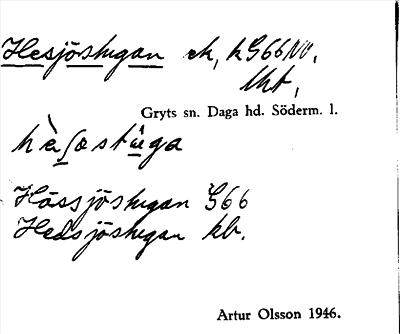 Hesjöstugan ek, k G66 NV.
Uht,
Gryts sn. Daga hd. Söderm. l.
hèʃostùga
Hässjöstugan G66
Hedsjöstugan kb.
Artur Olsson 1946.